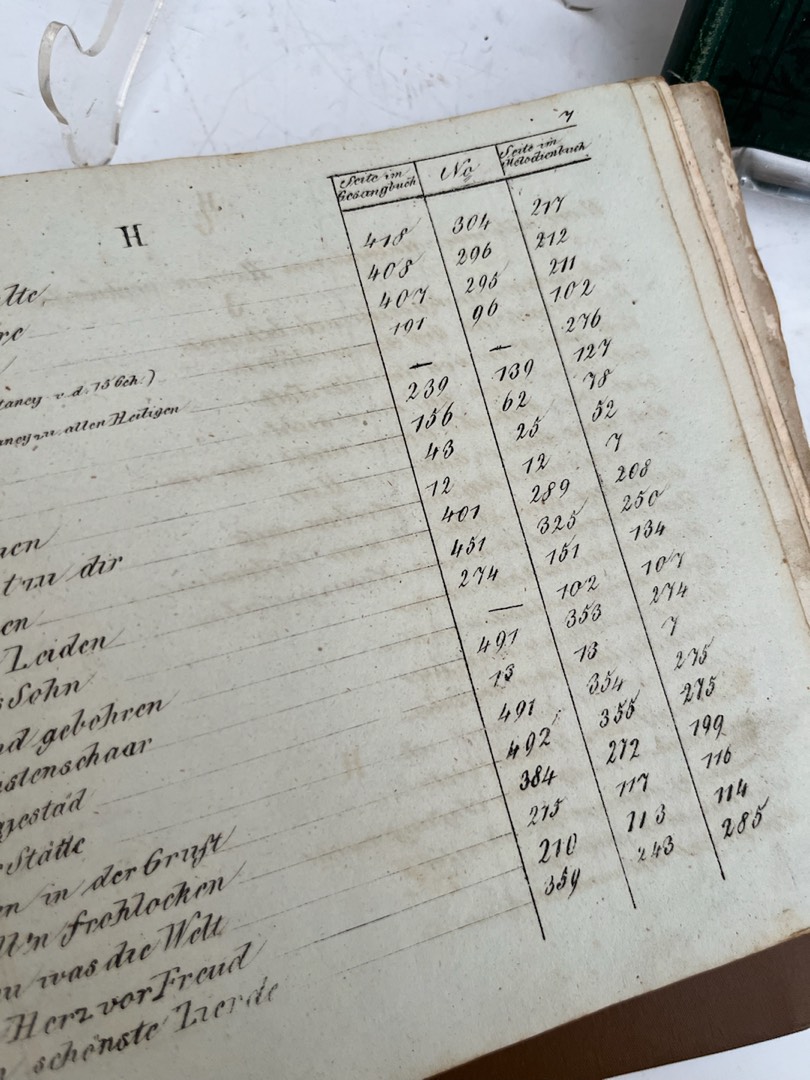 7
Seite im Gesangbuch No Seite im Melodienbuch
H
tte 418 304 217
re 408 296 212
407 295 211
taney v. d. 15 Geh.) 191 96 102
aney zu allen Heiligen — — 276
239 139 127
156 62 78
nen 43 25 52
t zu dir 12 12 7
en 401 289 208
Leiden 451 325 250
s Sohn 274 151 134
nd gebohren — 102 107
stenschaar 491 353 274
jestäd 13 13 7
Stätte 491 354 275
en in der Gruft 492 355 275
ll'n frohlocken 384 272 199
was die Welt 275 117 116
Herz vor Freud 210 113 114
schönste Zierde 359 243 285